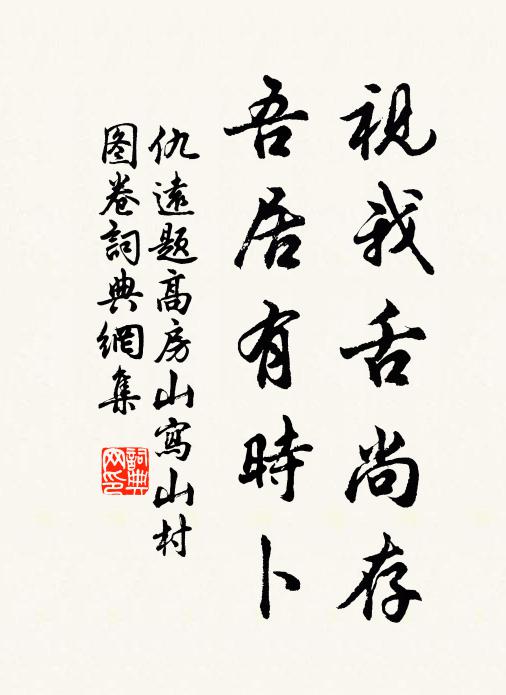 視我舌尚存
吾居有時卜
仇遠題高房山寫山村
图卷詞典網集
詞典
网印